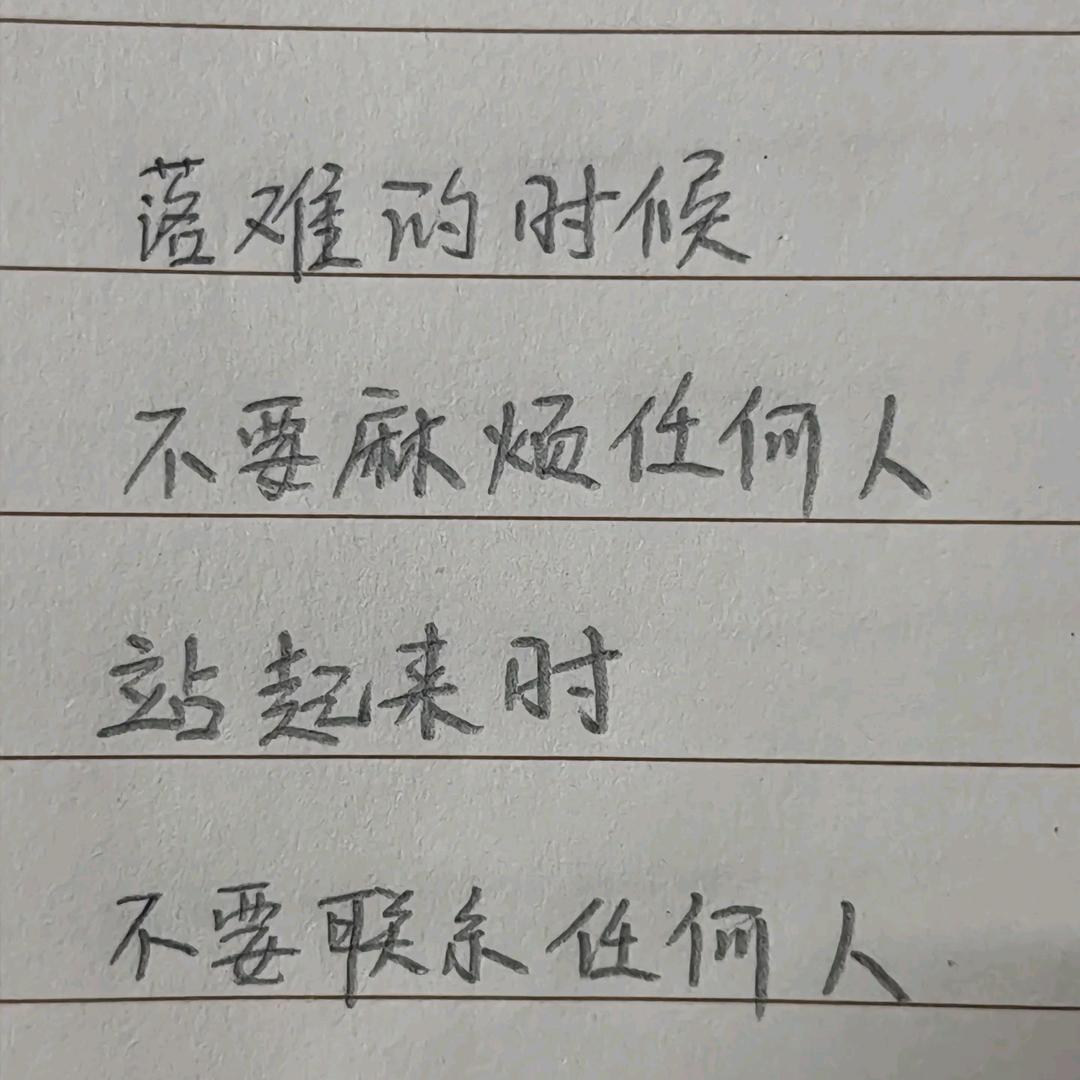 落难的时候
不要麻烦任何人
站起来时
不要联系任何人